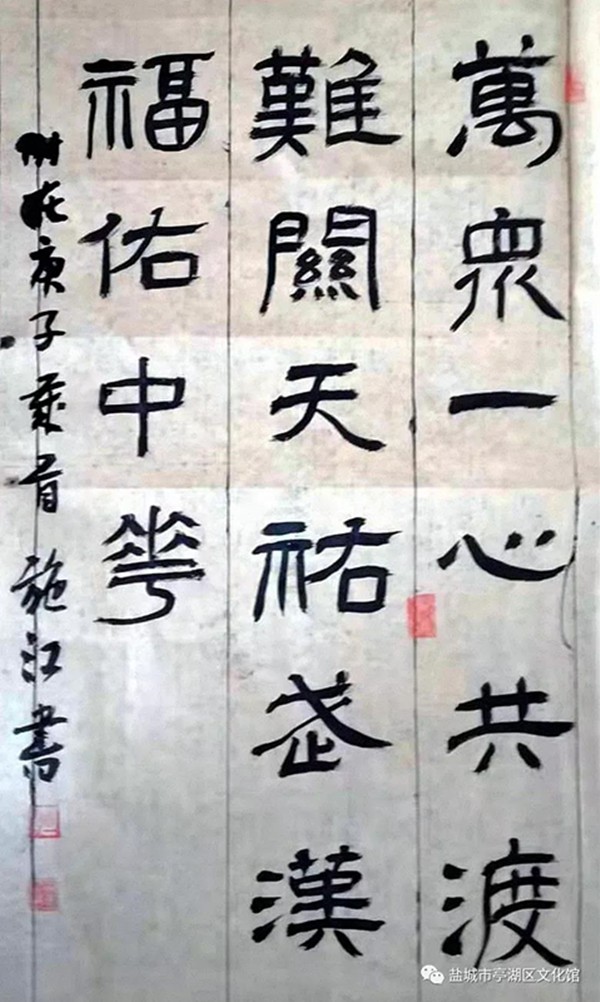 萬衆一心共渡
難關天祐武漢
福佑中華
時在庚子歲首 施江書
盐城市亭湖区文化馆